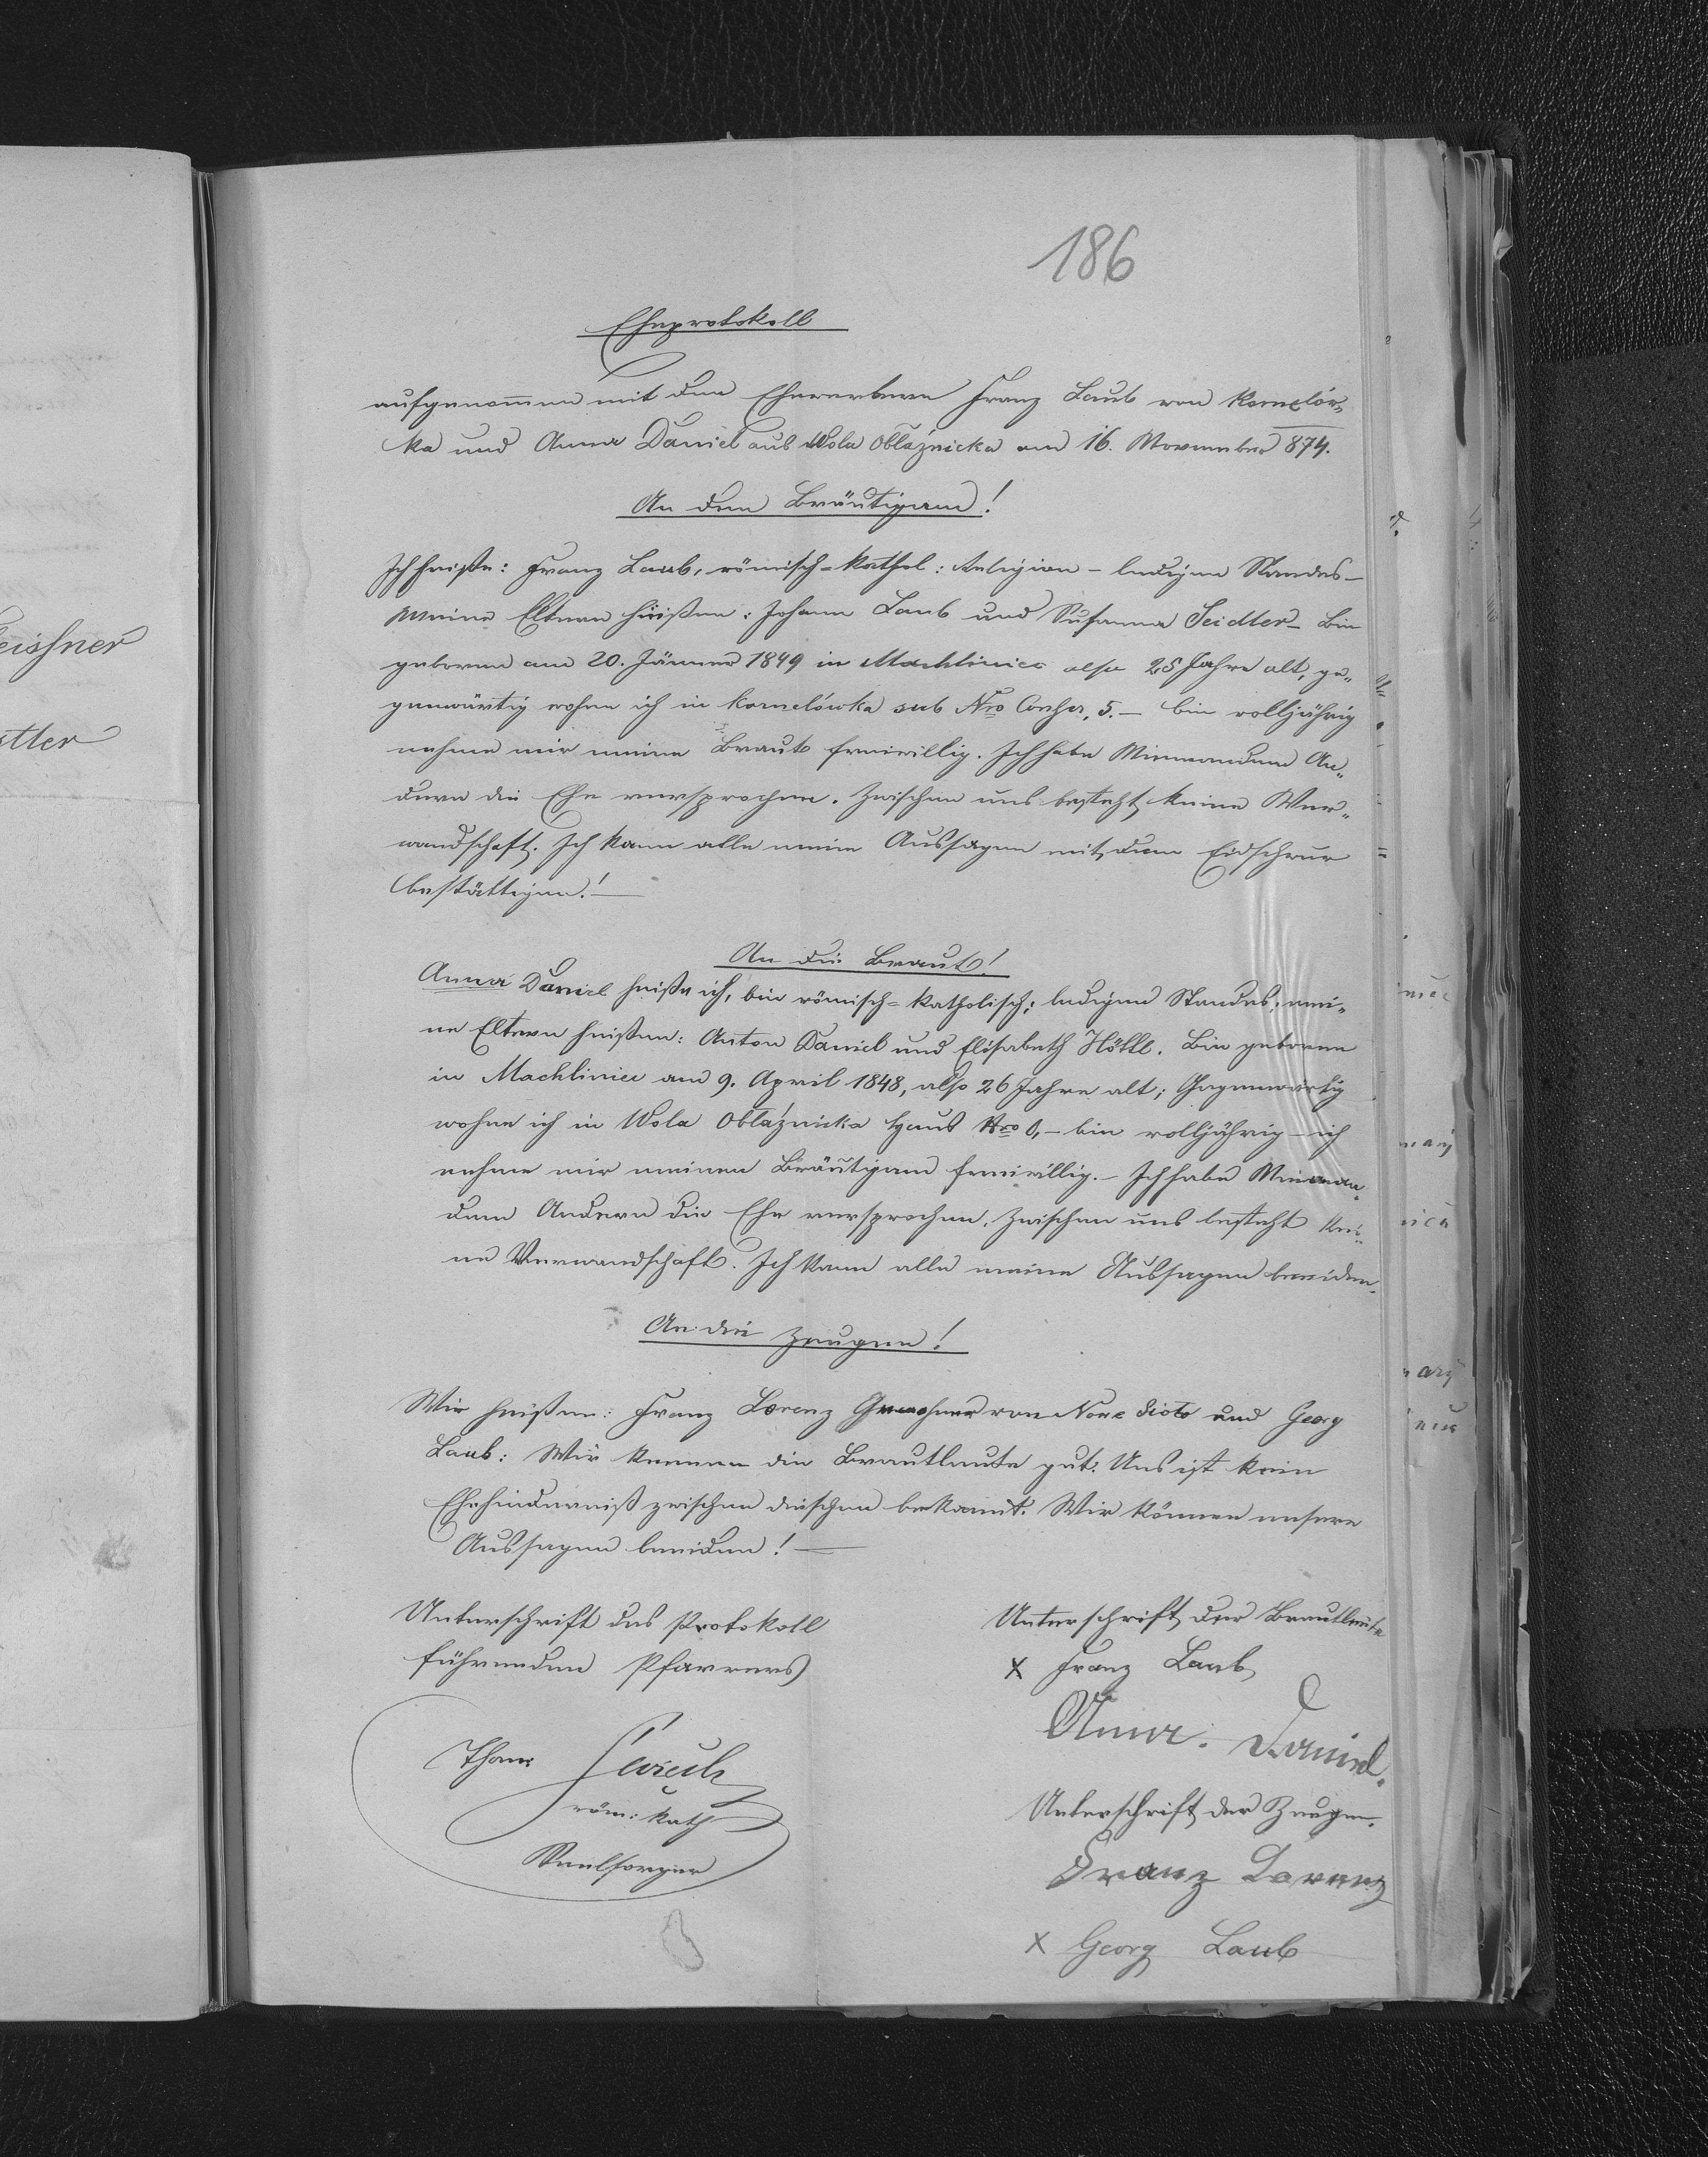 186
Eheprotokoll
aufgenommen mit den Ehewerbern Franz Laub von Kornelów„
ka und Anna Daniel aus Wola Oblaźnicka am 16. November 874.
An den Bräutigam!
Ich heiße: Franz Laub, römisch=kathol: Religion – ledigen Standes –
Meine Eltern heißen: Johann Laub und Susanna Seidler – Bin
geboren am 20. Jänner 1849 in Machliniec also 25 Jahre alt, ge„
genwärtig wohne ich in Kornelówka sub Nro Conscr. 5. – bin volljährig
nehme mir meine Braut freiwillig. Ich habe Niemandem An„
dern die Ehe versprochen. Zwischen uns besteht keine Ver„
wandschaft. Ich kann alle meine Aussagen mit dem Eidschwur
bestättigen! –
An die Braut!
Anna Daniel heiße ich, bin römisch=katholisch; ledigen Standes; mei„
ne Eltern heißen: Anton Daniel und Elisabeth Hölle. Bin geboren
in Machliniec am 9. April 1848, also 26 Jahre alt; Gegenwärtig
wohne ich in Wola Oblaźnicka Haus Nro 0, – bin volljährig – ich
nehme mir meinen Bräutigam freiwillig. – Ich habe Nieman„
dem Andern die Ehe versprochen. Zwischen uns besteht kei„
ne Verwandschaft. Ich kann alle meine Aussagen beeiden.
An die Zeugen!
Wir heißen: Franz Lorenz von Nowe Sioło und Georg
Laub: Wir kennen die Brautleute gut. Uns ist kein
Ehehinderniß zwischen diesen bekannt. Wir können unsere
Aussagen beeiden! –
Unterschrift des Protokoll
führenden Pfarrers
Thom
röm: kath
Seelsorger
Unterschrift der Brautleute
X Franz Laub
Anna. Daniel.
Unterschrift der Zeugen.
Franz Lorenz
X Georg Laub